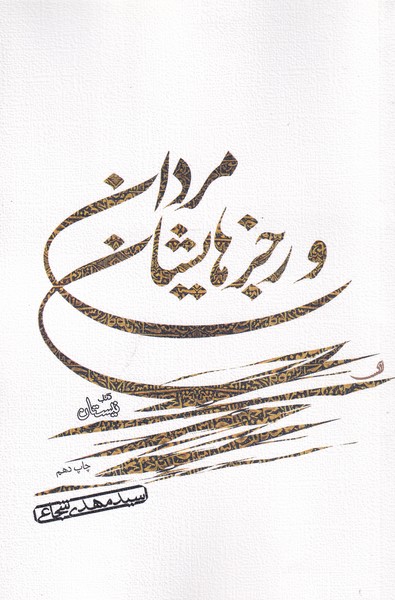 مردان
و رجزهایشان
کتاب
نیستان
چاپ دهم
سید مهدی شجاعی